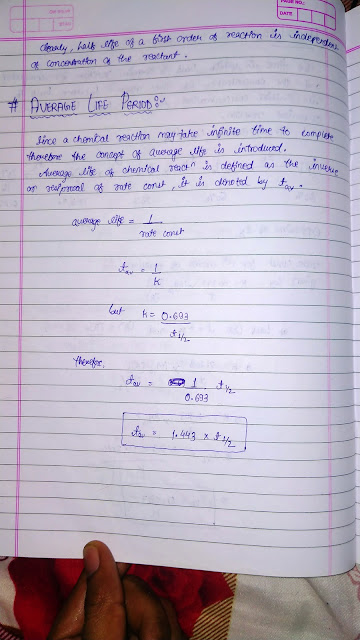 PAGE NO.:
DATE
clearly, half life of a first order of reaction is independent
of concentration of the reactant.
# AVERAGE LIFE PERIOD:-
Since a chemical reaction may take infinite time to complete
therefore the concept of average life is introduced.
Average life of chemical reactn is defined as the inverse
or reciprocal of rate const, it is denoted by tav.
average life = 1
rate const
tav = 1
K
but K = 0.693
t1/2
therefore,
tav = 1 . t1/2
0.693
tav = 1.443 x t1/2